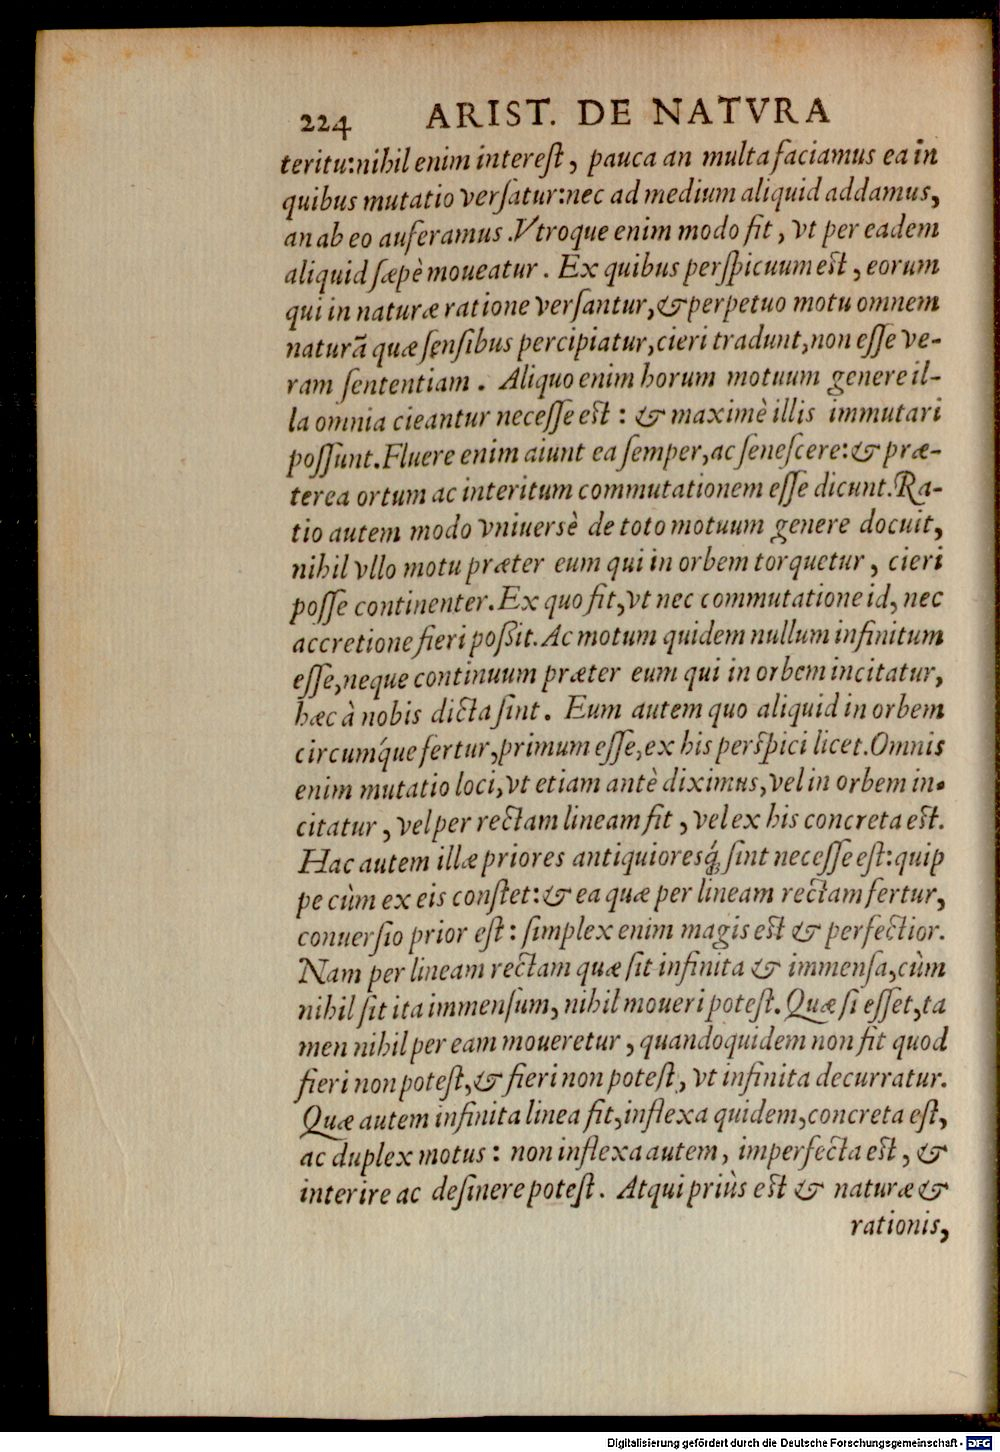 224 ARIST. DE NATVRA
teritu:nihil enim interest, pauca an multa faciamus ea in
quibus mutatio versatur:nec ad medium aliquid addamus,
an ab eo auferamus. Vtroque enim modo fit, vt per eadem
aliquid sæpè moueatur. Ex quibus perspicuum est, eorum
qui in naturæ ratione versantur, & perpetuo motu omnem
naturã quæ sensibus percipiatur, cieri tradunt, non esse ve-
ram sententiam. Aliquo enim horum motuum genere il-
la omnia cieantur necesse est: & maximè illis immutari
possunt. Fluere enim aiunt ea semper, ac senescere: & præ-
terea ortum ac interitum commutationem esse dicunt. Ra-
tio autem modo vniuersè de toto motuum genere docuit,
nihil vllo motu præter eum qui in orbem torquetur, cieri
posse continenter. Ex quo fit, vt nec commutatione id, nec
accretione fieri poßit. Ac motum quidem nullum infinitum
esse, neque continuum præter eum qui in orbem incitatur,
hæc à nobis dicta sint. Eum autem quo aliquid in orbem
circumq́ue fertur, primum esse, ex his perspici licet. Omnis
enim mutatio loci, vt etiam antè diximus, vel in orbem in-
citatur, vel per rectam lineam fit, vel ex his concreta est.
Hac autem illæ priores antiquioresq́; sint necesse est: quip
pe cùm ex eis constet: & ea quæ per lineam rectam fertur,
conuersio prior est: simplex enim magis est & perfectior.
Nam per lineam rectam quæ sit infinita & immensa, cùm
nihil sit ita immensum, nihil moueri potest. Quæ si esset, ta
men nihil per eam moueretur, quandoquidem non fit quod
fieri non potest, & fieri non potest, vt infinita decurratur.
Quæ autem infinita linea fit, inflexa quidem, concreta est,
ac duplex motus: non inflexa autem, imperfecta est, &
interire ac desinere potest. Atqui priùs est & naturæ &
rationis,
Digitalisierung gefördert durch die Deutsche Forschungsgemeinschaft - DFG